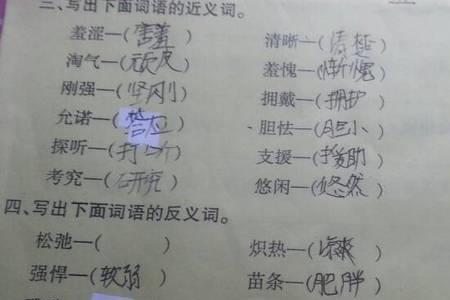 三、写出下面词语的近义词。
羞涩—(害羞) 清晰—(清楚)
淘气—(顽皮) 羞愧—(惭愧)
刚强—(坚刚) 拥戴—(拥护)
允诺—(答应) 胆怯—(胆小)
探听—(打听) 支援—(援助)
考究—(研究) 悠闲—(悠然)
四、写出下面词语的反义词。
松弛—( ) 炽热—(凉爽)
强悍—(软弱) 苗条—(肥胖)